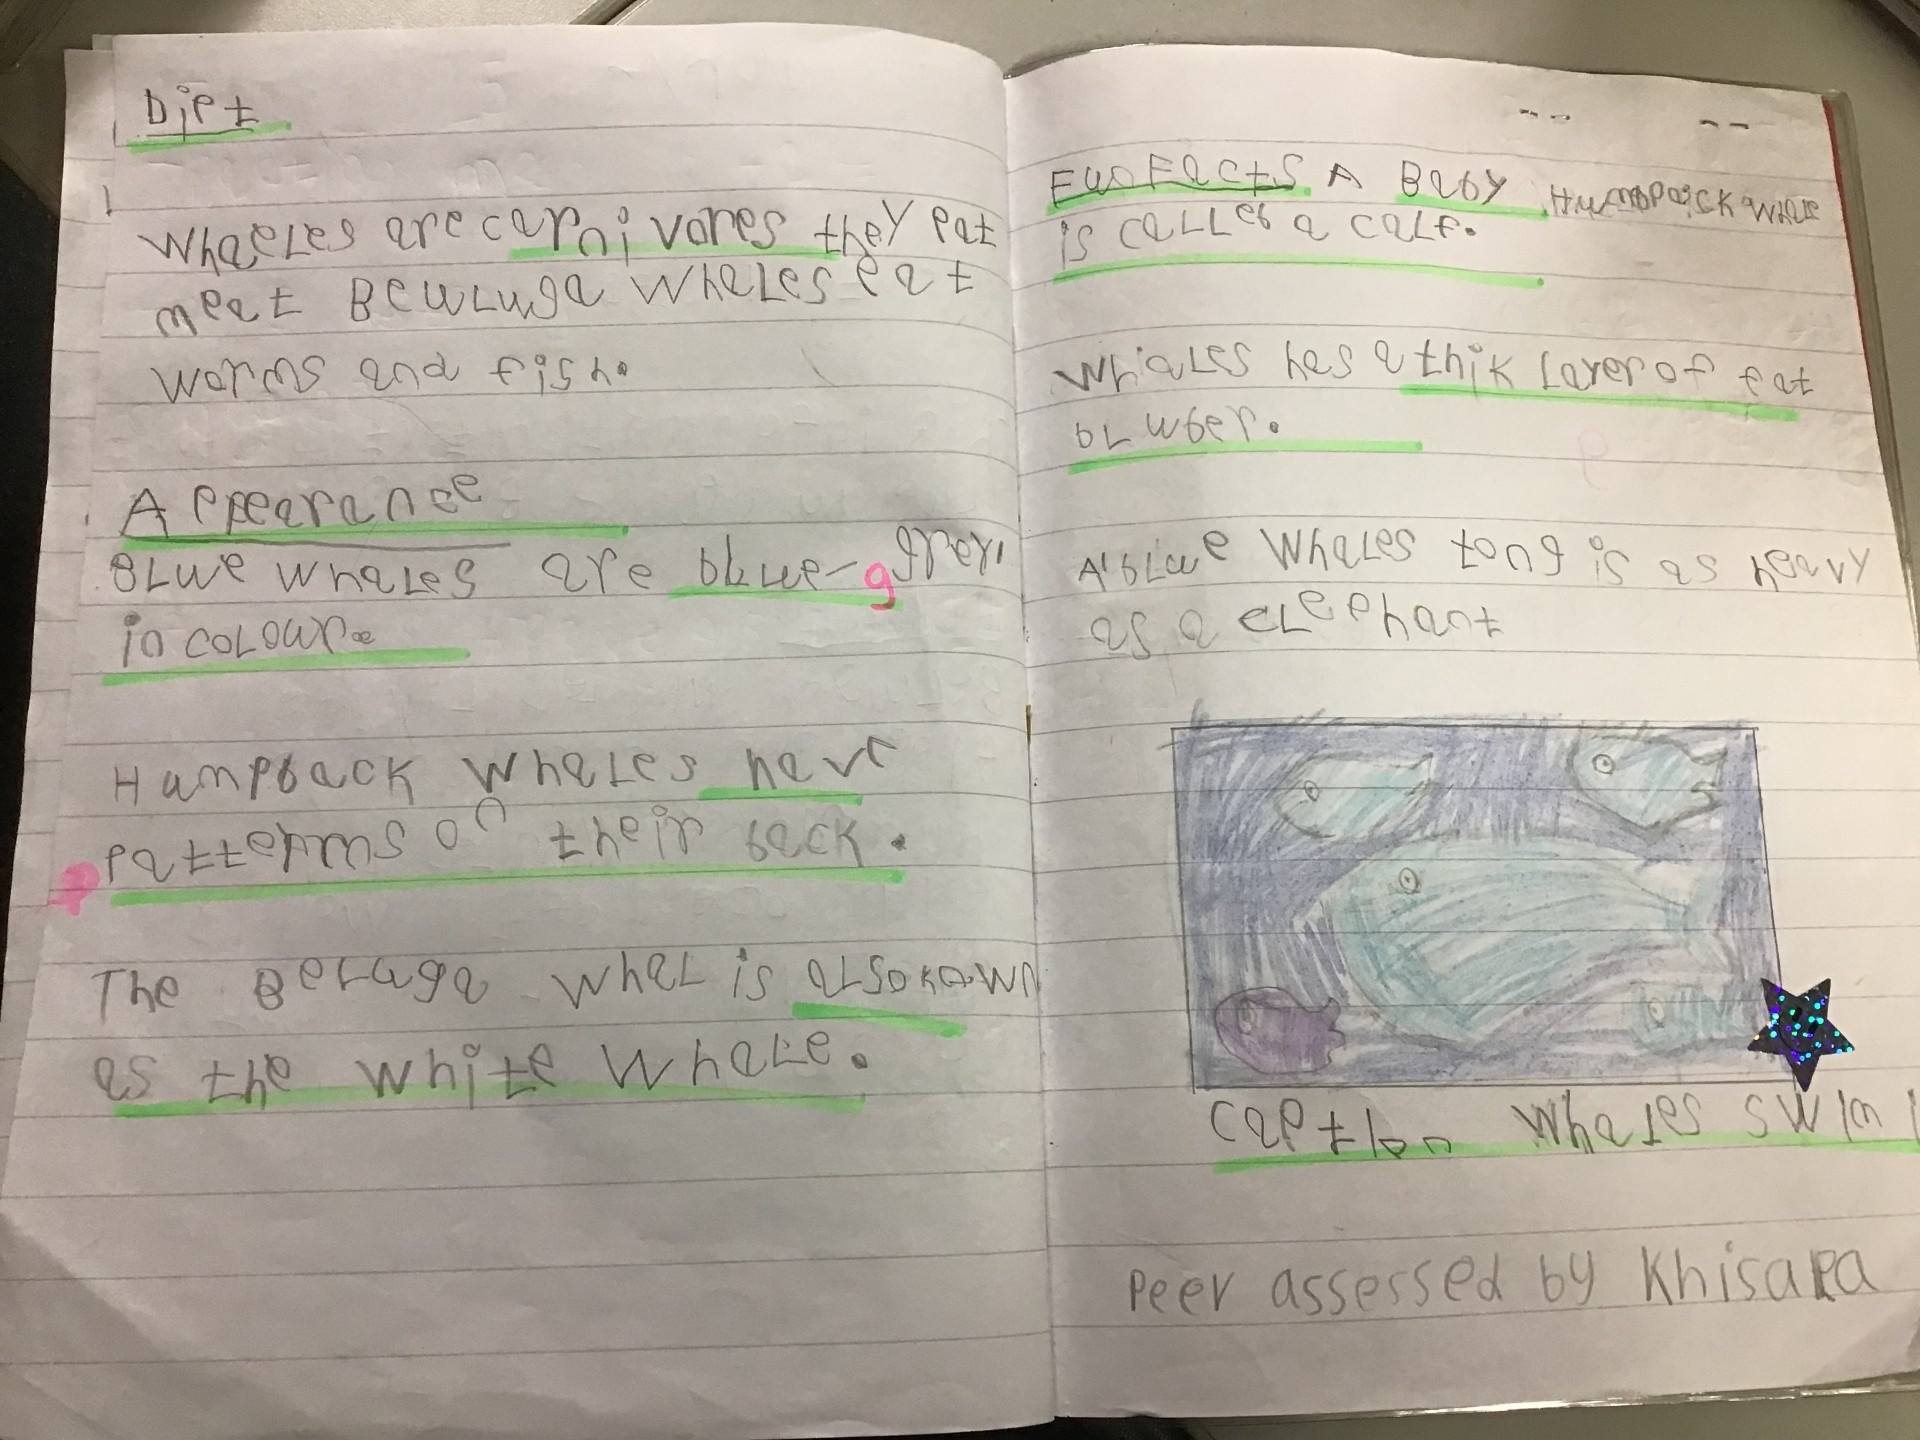 Diet
Whaeles are carnivores they eat
meat Bewluga whales eat
worms and fish.
Appearance
Blwe whales are blue-ggrey
in colour.
Humpback whales have
patterms on their back.
The Beluga whal is also known
as the white whale.
Fun Facts A Baby Humpback whale
is called a calf.
Whales has a thik layer of fat
blwber.
A blwe whales tong is as heavy
as a elephant
Caption Whales swim
Peer assessed by Khisara